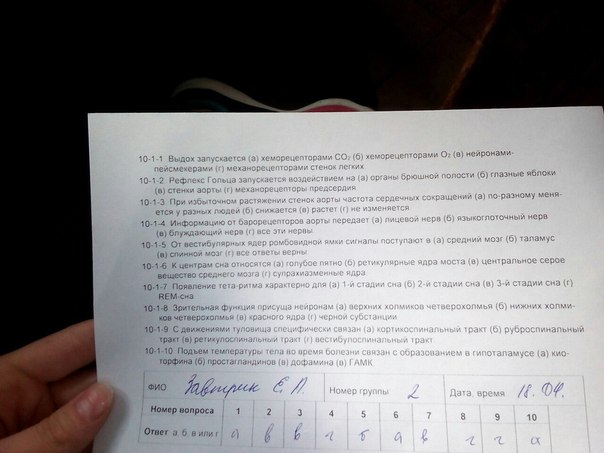 10-1-1 Выдох запускается (а) хеморецепторами CO₂ (б) хеморецепторами O₂ (в) нейронами-
пейсмекерами (г) механорецепторами стенок легких
10-1-2 Рефлекс Гольца запускается воздействием на (а) органы брюшной полости (б) глазные яблоки
(в) стенки аорты (г) механорецепторы предсердия
10-1-3 При избыточном растяжении стенок аорты частота сердечных сокращений (а) по-разному меня-
ется у разных людей (б) снижается (в) растет (г) не изменяется
10-1-4 Информацию от барорецепторов аорты передает (а) лицевой нерв (б) языкоглоточный нерв
(в) блуждающий нерв (г) все эти нервы
10-1-5 От вестибулярных ядер ромбовидной ямки сигналы поступают в (а) средний мозг (б) таламус
(в) спинной мозг (г) все ответы верны
10-1-6 К центрам сна относятся (а) голубое пятно (б) ретикулярные ядра моста (в) центральное серое
вещество среднего мозга (г) супрахиазменные ядра
10-1-7 Появление тета-ритма характерно для (а) 1-й стадии сна (б) 2-й стадии сна (в) 3-й стадии сна (г)
REM-сна
10-1-8 Зрительная функция присуща нейронам (а) верхних холмиков четверохолмья (б) нижних холми-
ков четверохолмья (в) красного ядра (г) черной субстанции
10-1-9 С движениями туловища специфически связан (а) кортикоспинальный тракт (б) руброспинальный
тракт (в) ретикулоспинальный тракт (г) вестибулоспинальный тракт
10-1-10 Подъем температуры тела во время болезни связан с образованием в гипоталамусе (а) кио-
торфина (б) простагландинов (в) дофамина (в) ГАМК
ФИО Завтрик Е. Л. Номер группы 2 Дата, время 18.04.
Номер вопроса 1 2 3 4 5 6 7 8 9 10
Ответ а, б, в или г а в в г б а в г г а